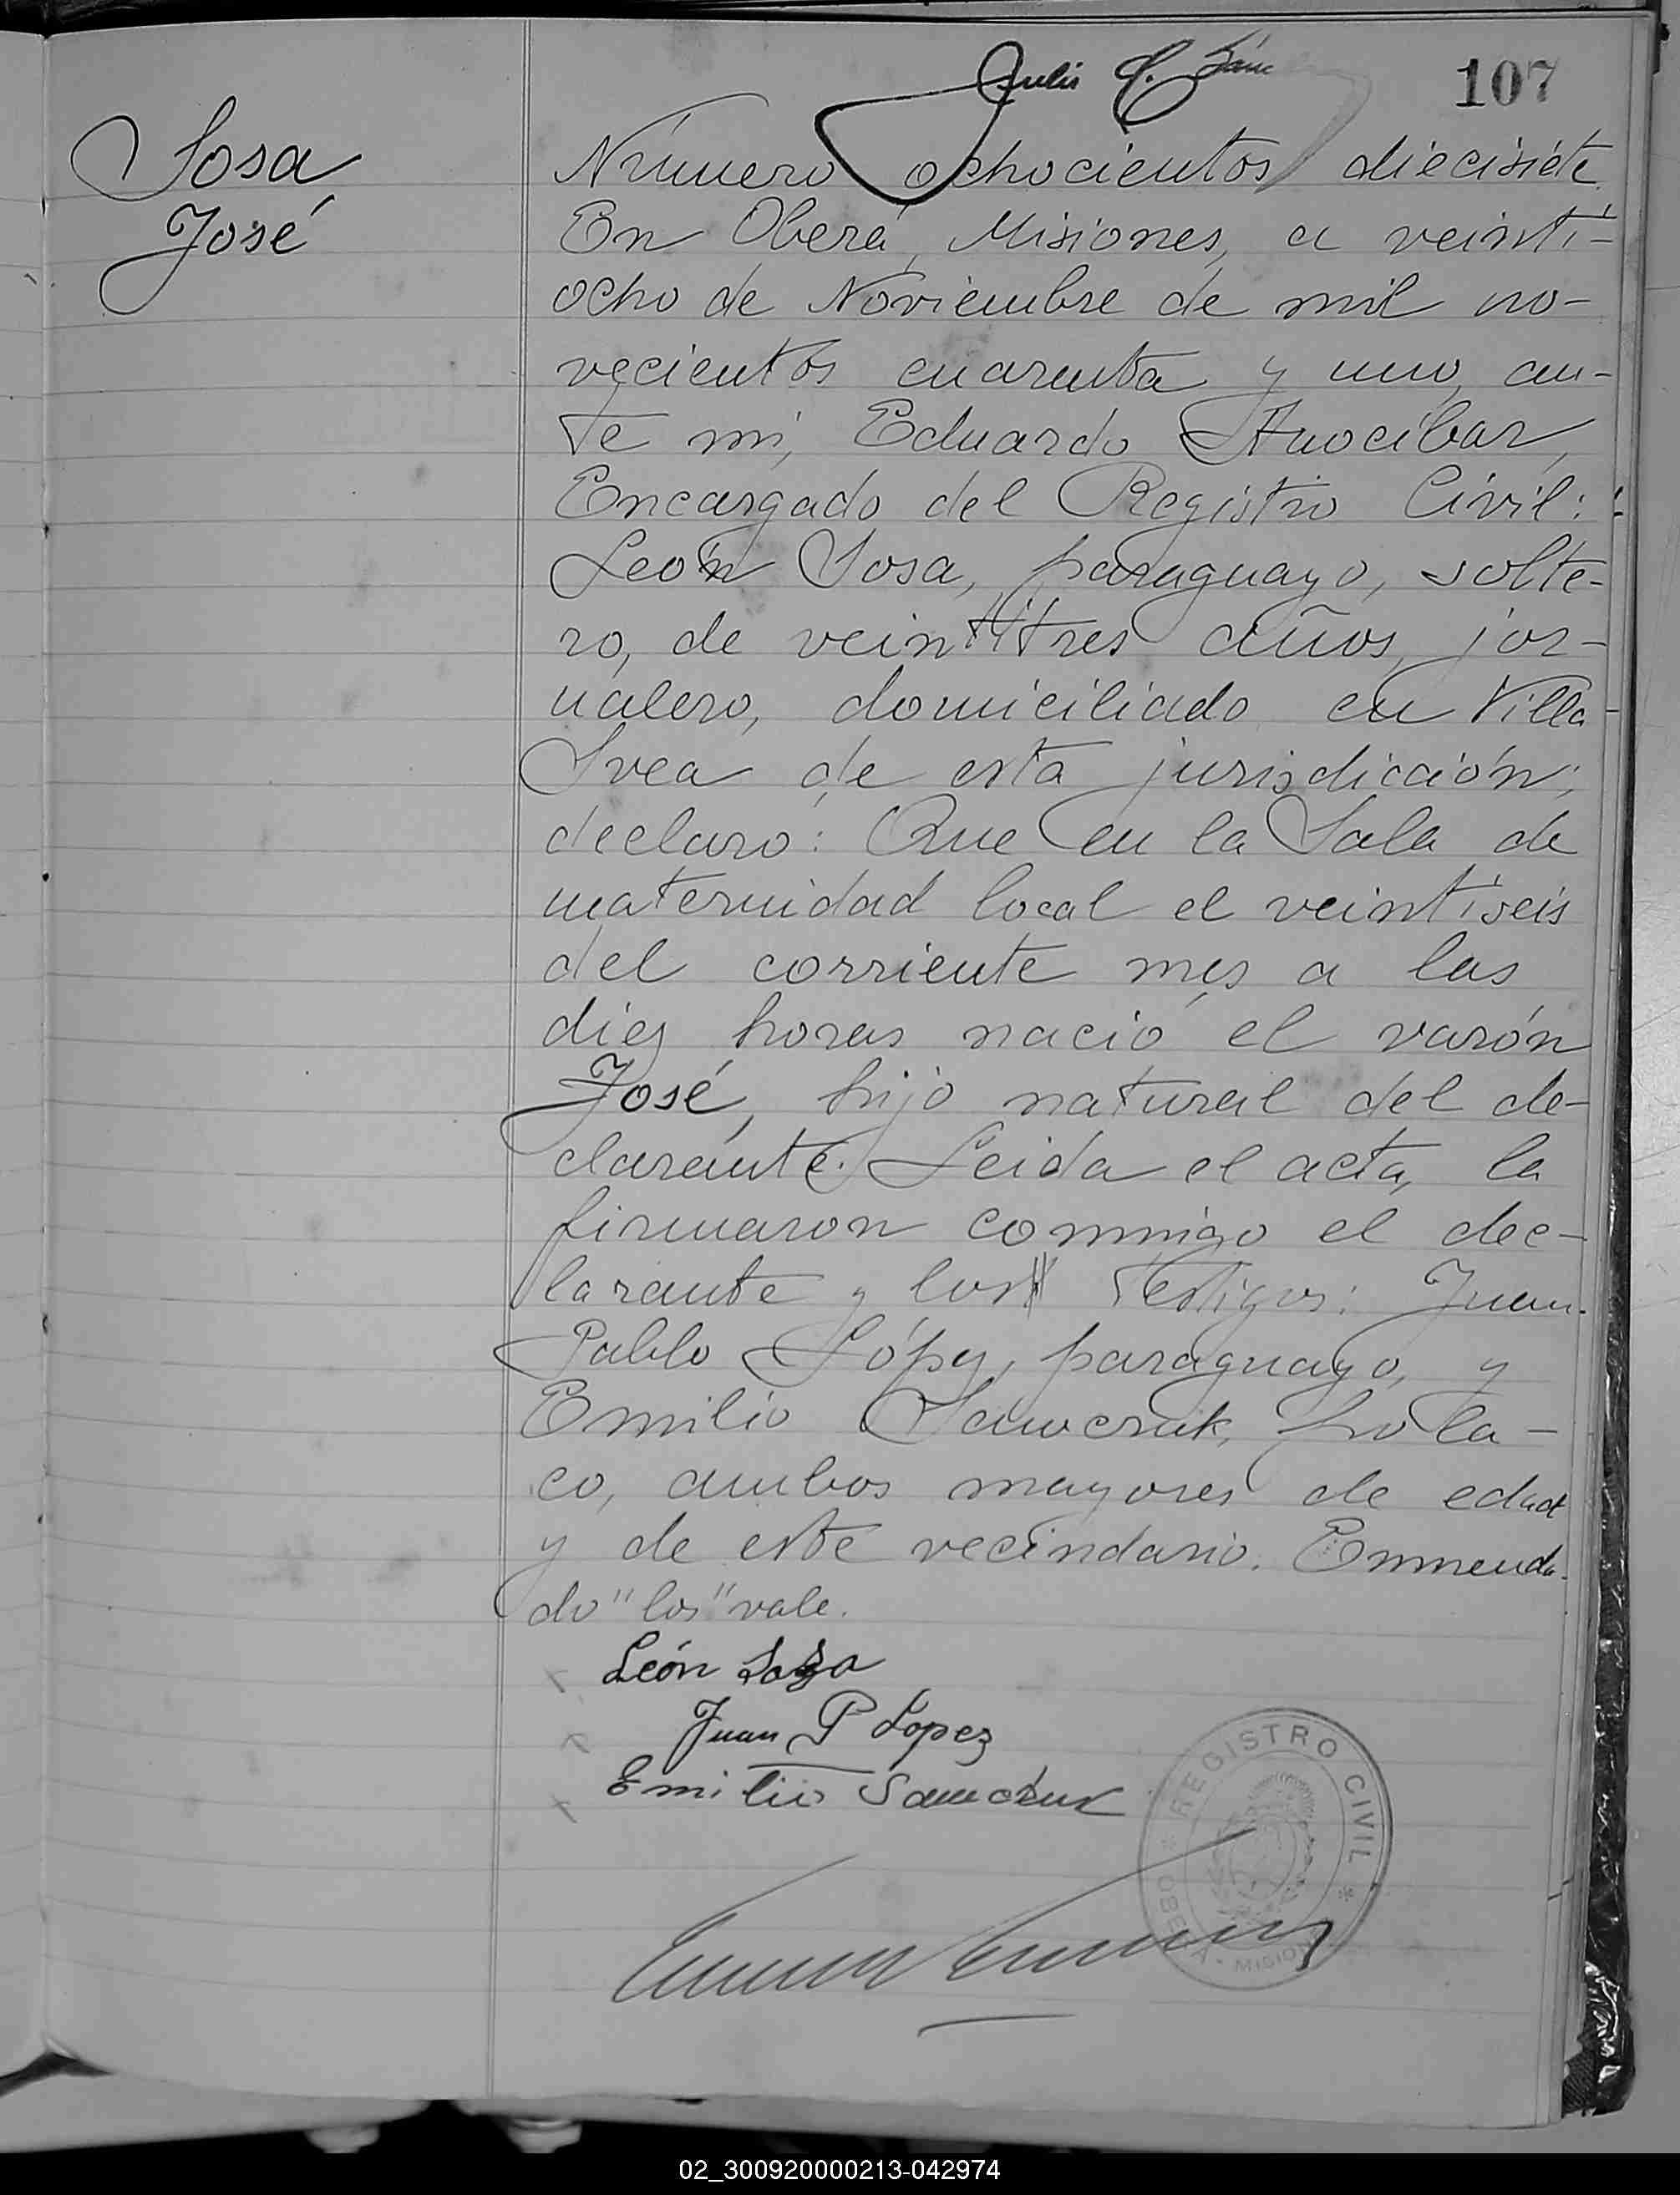 107
Sosa
José
Número ochocientos diecisiete
En Oberá, Misiones, a veinti-
ocho de Noviembre de mil no-
vecientos cuarenta y uno, an-
te mi, Eduardo Anocíbar,
Encargado del Registro Civil:
León Sosa, paraguayo, solte-
ro, de veintitres años, jor-
nalero, domiciliado en Villa
Svea de esta jurisdicción;
declaro: Que en la Sala de
maternidad local el veintiseis
del corriente mes a las
diez horas nació el varón
José, hijo natural del de-
clarante. Leida el acta, la
firmaron conmigo el dec-
larante y los testigos: Juan
Pablo López, paraguayo, y
Emilio Sawczuk, pola-
co, ambos mayores de edad
y de este vecindario. Enmenda-
do "los" vale.
León Sosa
Juan P Lopez
Emilio
REGISTRO CIVIL
OBERA - MISIONES
02_300920000213-042974